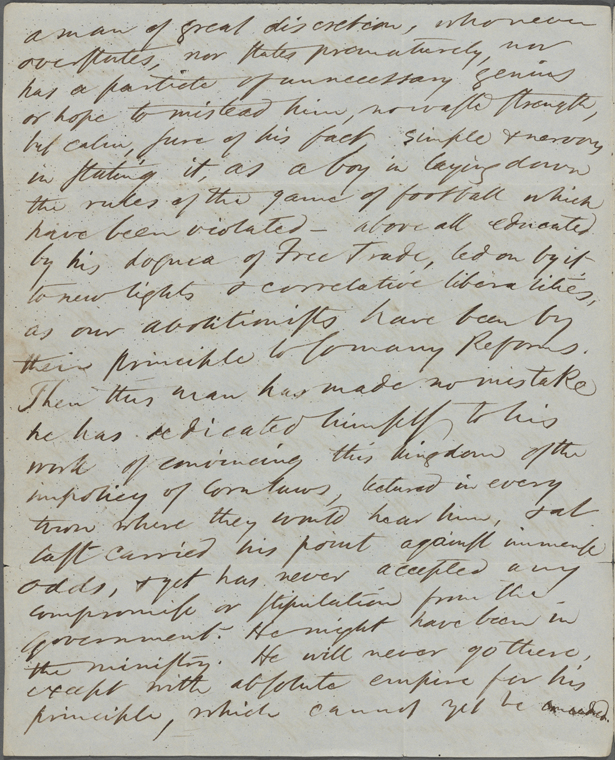 a man of great discretion, who never
overstates, nor states prematurely, nor
has a particle of unnecessary genius
or hope to mislead him, no waste strength,
but calm, sure of his fact, simple & nervous
in stating it, as a boy in laying down
the rules of the game of football which
have been violated – above all educated
by his dogma of Free Trade, led on by it
to new lights & correlative liberalities,
as our abolitionists have been by
their principle to so many Reforms.
Then this man has made no mistake
he has dedicated himself to his
work of convincing this kingdom of the
impolicy of corn laws, lectured in every
town where they would hear him, & at
last carried his point against immense
odds, & yet has never accepted any
compromise or stipulation from the
government. He might have been in
the ministry. He will never go there,
except with absolute empire for his
principle, which cannot yet be conceded.